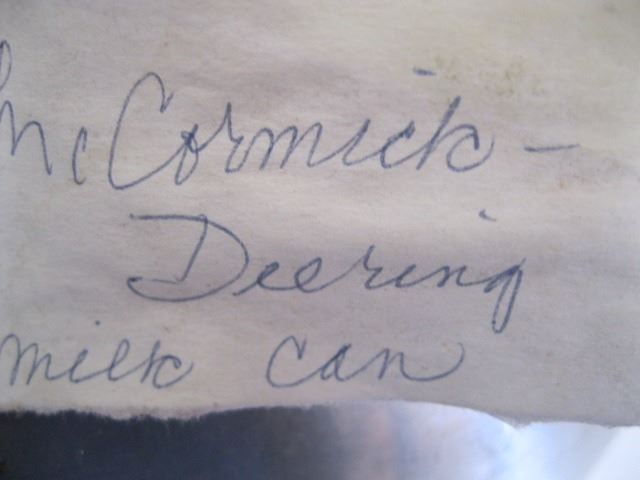 McCormick -
Deering
milk can